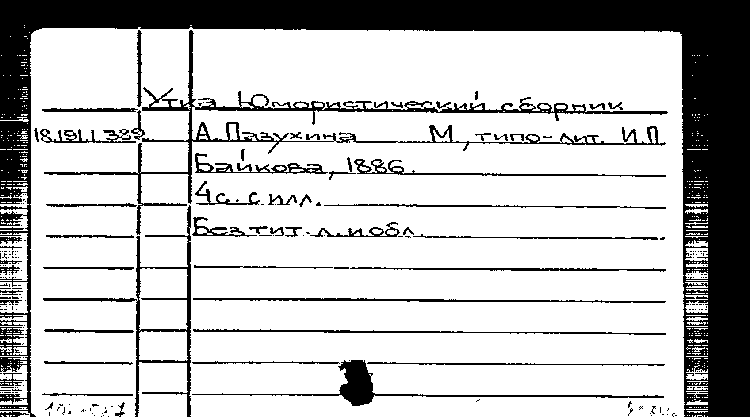 Утка. Юмористический сборник
18.191.1.389. А. Пазухина М., типо-лит. И.П.
Байкова, 1886.
4 с. с илл.
Без тит. л. и обл.